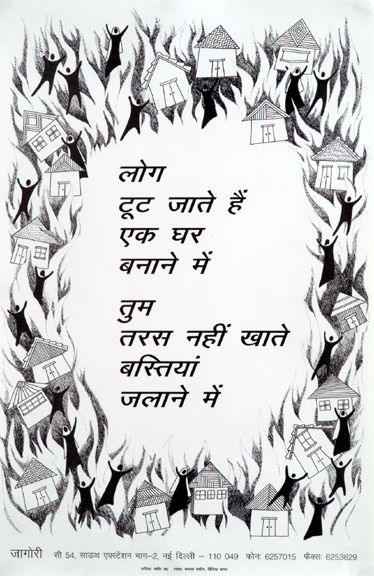 लोग
टूट जाते हैं
एक घर
बनाने में
तुम
तरस नहीं खाते
बस्तियां
जलाने में
जागोरी सी 54, साऊथ एक्स्टेंशन भाग–2, नई दिल्ली – 110 049 फोनः 6257015 फैक्सः 6253629